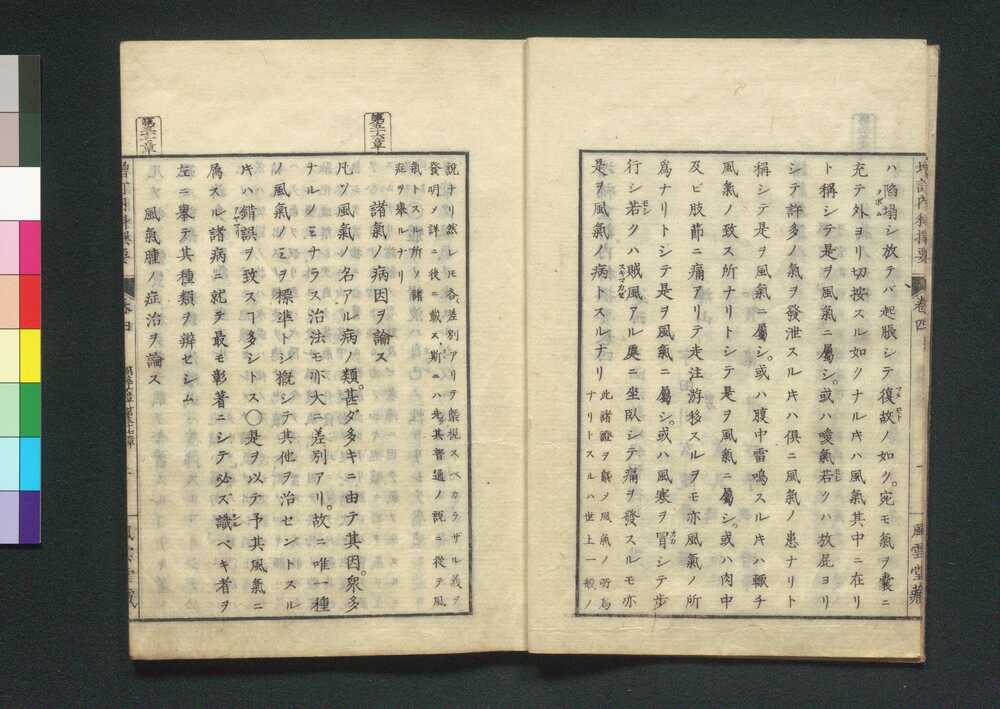 ハ陷塌シ放テバ起脹シテ復故ノ如ク。宛モ氣ヲ嚢ニ
充テ外ヨリ切按スル如クナルキハ風氣其中ニ在リ
ト稱シテ是ヲ風氣ニ屬シ。或ハ噯氣若クハ放屁ヨリ
シテ許多ノ氣ヲ發泄スル片ハ俱ニ風氣ノ患ナリト
稱シテ是ヲ風氣ニ屬シ。或ハ腹中雷鳴スル片ハ輙チ
風氣ノ致ス所ナリトシテ是ヲ風氣ニ屬シ。或ハ肉中
及ビ肢節ニ痛アリテ走注游移スルヲモ亦風氣ノ所
爲ナリトシテ是ヲ風氣ニ屬シ。或ハ風寒ヲ冒シテ步
行シ若クハ賊風アル奥ニ坐臥シテ痛ヲ發スルモ亦
是ヲ風氣ノ病トスルナリ 此諸證ヲ般メ風氣ノ所爲
ナリトスルハ世上一般ノ
風雲堂藏
增訂內科撰要
卷四
說ナリ然レ𪜈各差別アリヲ能悦スベカラザル義ヲ
發明ノ詳ニ後ニ載ス斯ニハ先其普通ノ說ニ從テ風
氣トスル所ノ諸
症ヲ擧ルナリ
第五十六章
諸氣ノ病因ヲ論ス
凡ソ風氣ノ名アル病ノ類。甚ダ多キニ由テ其因。衆多
ナルノミナラス治法モ亦大ニ差別アリ。故ニ唯一種
ノ風氣ノミヲ標準トシ槪シテ其他ヲ治セントスル
片ハ錯誤ヲ致スヿ多シトス〇是ヲ以テ予其風氣ニ
屬スル諸病ニ就テ最モ彰著ニシテ必ズ識ベキ者ヲ
左ニ擧テ其種類ヲ辨セシム
風氣腫ノ症治ヲ論ス